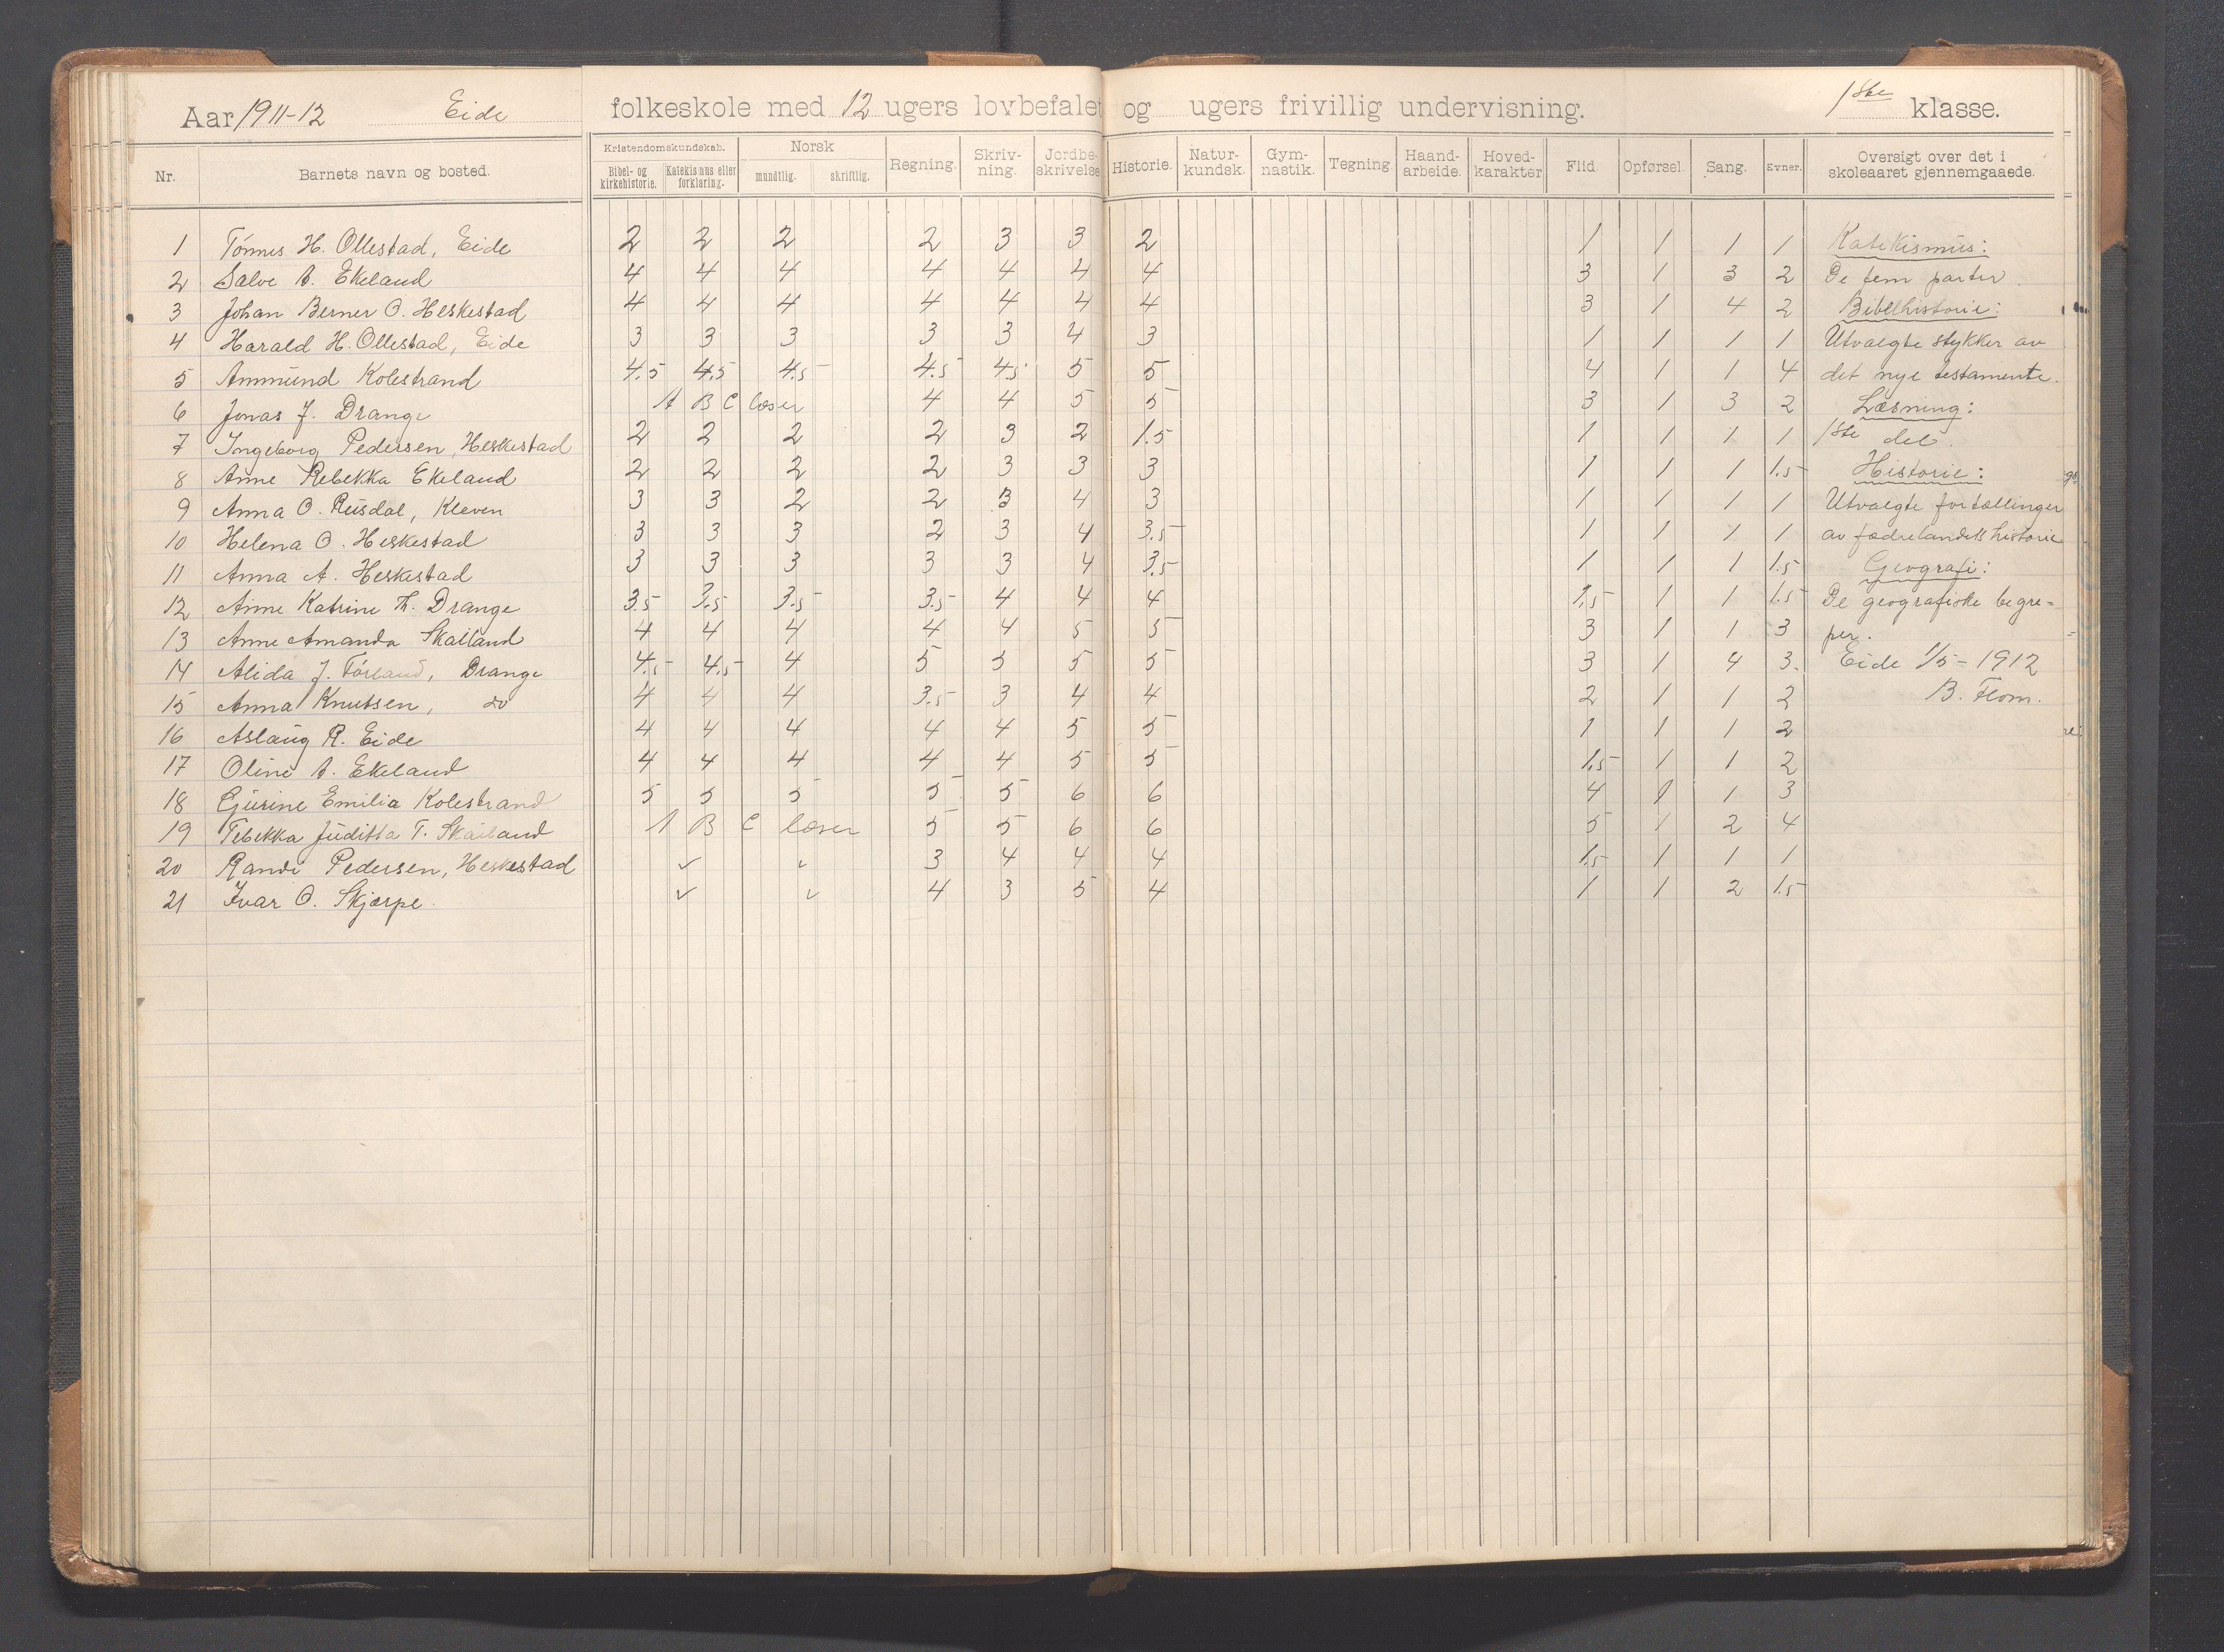 Aar 1911-12 Eide folkeskole med 12 ugers lovbefalet og ugers frivillig undervisning. 1ste klasse.
Nr. Barnets navn og bosted. Kristendomskundskab. Bibel- og kirkehistorie. Katekismus eller forklaring. Norsk mundtlig. skriftlig. Regning. Skriv-ning. Jordbe-skrivelse Historie. Natur-kundsk. Gym-nastik. Tegning. Haand-arbeide. Hoved-karakter Flid. Opførsel. Sang. Evner. Oversigt over det i skoleaaret gjennemgaaede.
1 Tønnes H. Ollestad, Eide 2 2 2 2 3 3 2 1 1 1 1 Katekismus:
2 Salve A. Ekeland 4 4 4 4 4 4 4 3 1 3 2 De fem parter.
3 Johan Berner O. Heskestad 4 4 4 4 4 4 4 3 1 4 2 Bibelhistorie:
4 Harald H. Ollestad, Eide 3 3 3 3 3 4 3 1 1 1 1 Utvalgte stykker av
5 Ammund Kolestrand 4.5 4.5 4.5 4.5 4.5 5 5 4 1 1 4 det nye testamente.
6 Jonas J. Drange A B C læser 4 4 5 5 3 1 3 2 Læsning:
7 Ingeborg Pedersen, Heskestad 2 2 2 2 3 2 1.5 1 1 1 1 1ste del.
8 Anne Rebekka Ekeland 2 2 2 2 3 3 3 1 1 1 1.5 Historie:
9 Anna O. Rusdal, Kleven 3 3 2 2 3 4 3 1 1 1 1 Utvalgte fortællinger
10 Helena O. Heskestad 3 3 3 2 3 4 3.5 1 1 1 1 av fædrelandets historie
11 Anna A. Heskestad 3 3 3 3 3 4 3.5 1 1 1 1.5 Geografi:
12 Anne Katrine Th. Drange 3.5 3.5 3.5 3.5 4 4 4 1.5 1 1 1.5 De geografiske begre=
13 Anne Amanda Skailand 4 4 4 4 4 5 5 3 1 1 3 per.
14 Alida J. Tørland, Drange 4.5 4.5 4 5 5 5 5 3 1 4 3. Eide 1/5 - 1912
15 Anna Knutsen, do 4 4 4 3.5 3 4 4 2 1 1 2 B. Flom.
16 Aslaug R. Eide 4 4 4 4 4 5 5 1 1 1 2
17 Oline A. Ekeland 4 4 4 4 4 5 5 1.5 1 1 2
18 Gurine Emilia Kolestrand 5 5 5 5 5 6 6 4 1 1 3
19 Tebekka Juditta T. Skailand A B C læser 5 5 6 6 5 1 2 4
20 Randi Pedersen, Heskestad ✓ ✓ 3 4 4 4 1.5 1 1 1
21 Ivar O. Skjærpe. ✓ ✓ 4 3 5 4 1 1 2 1.5